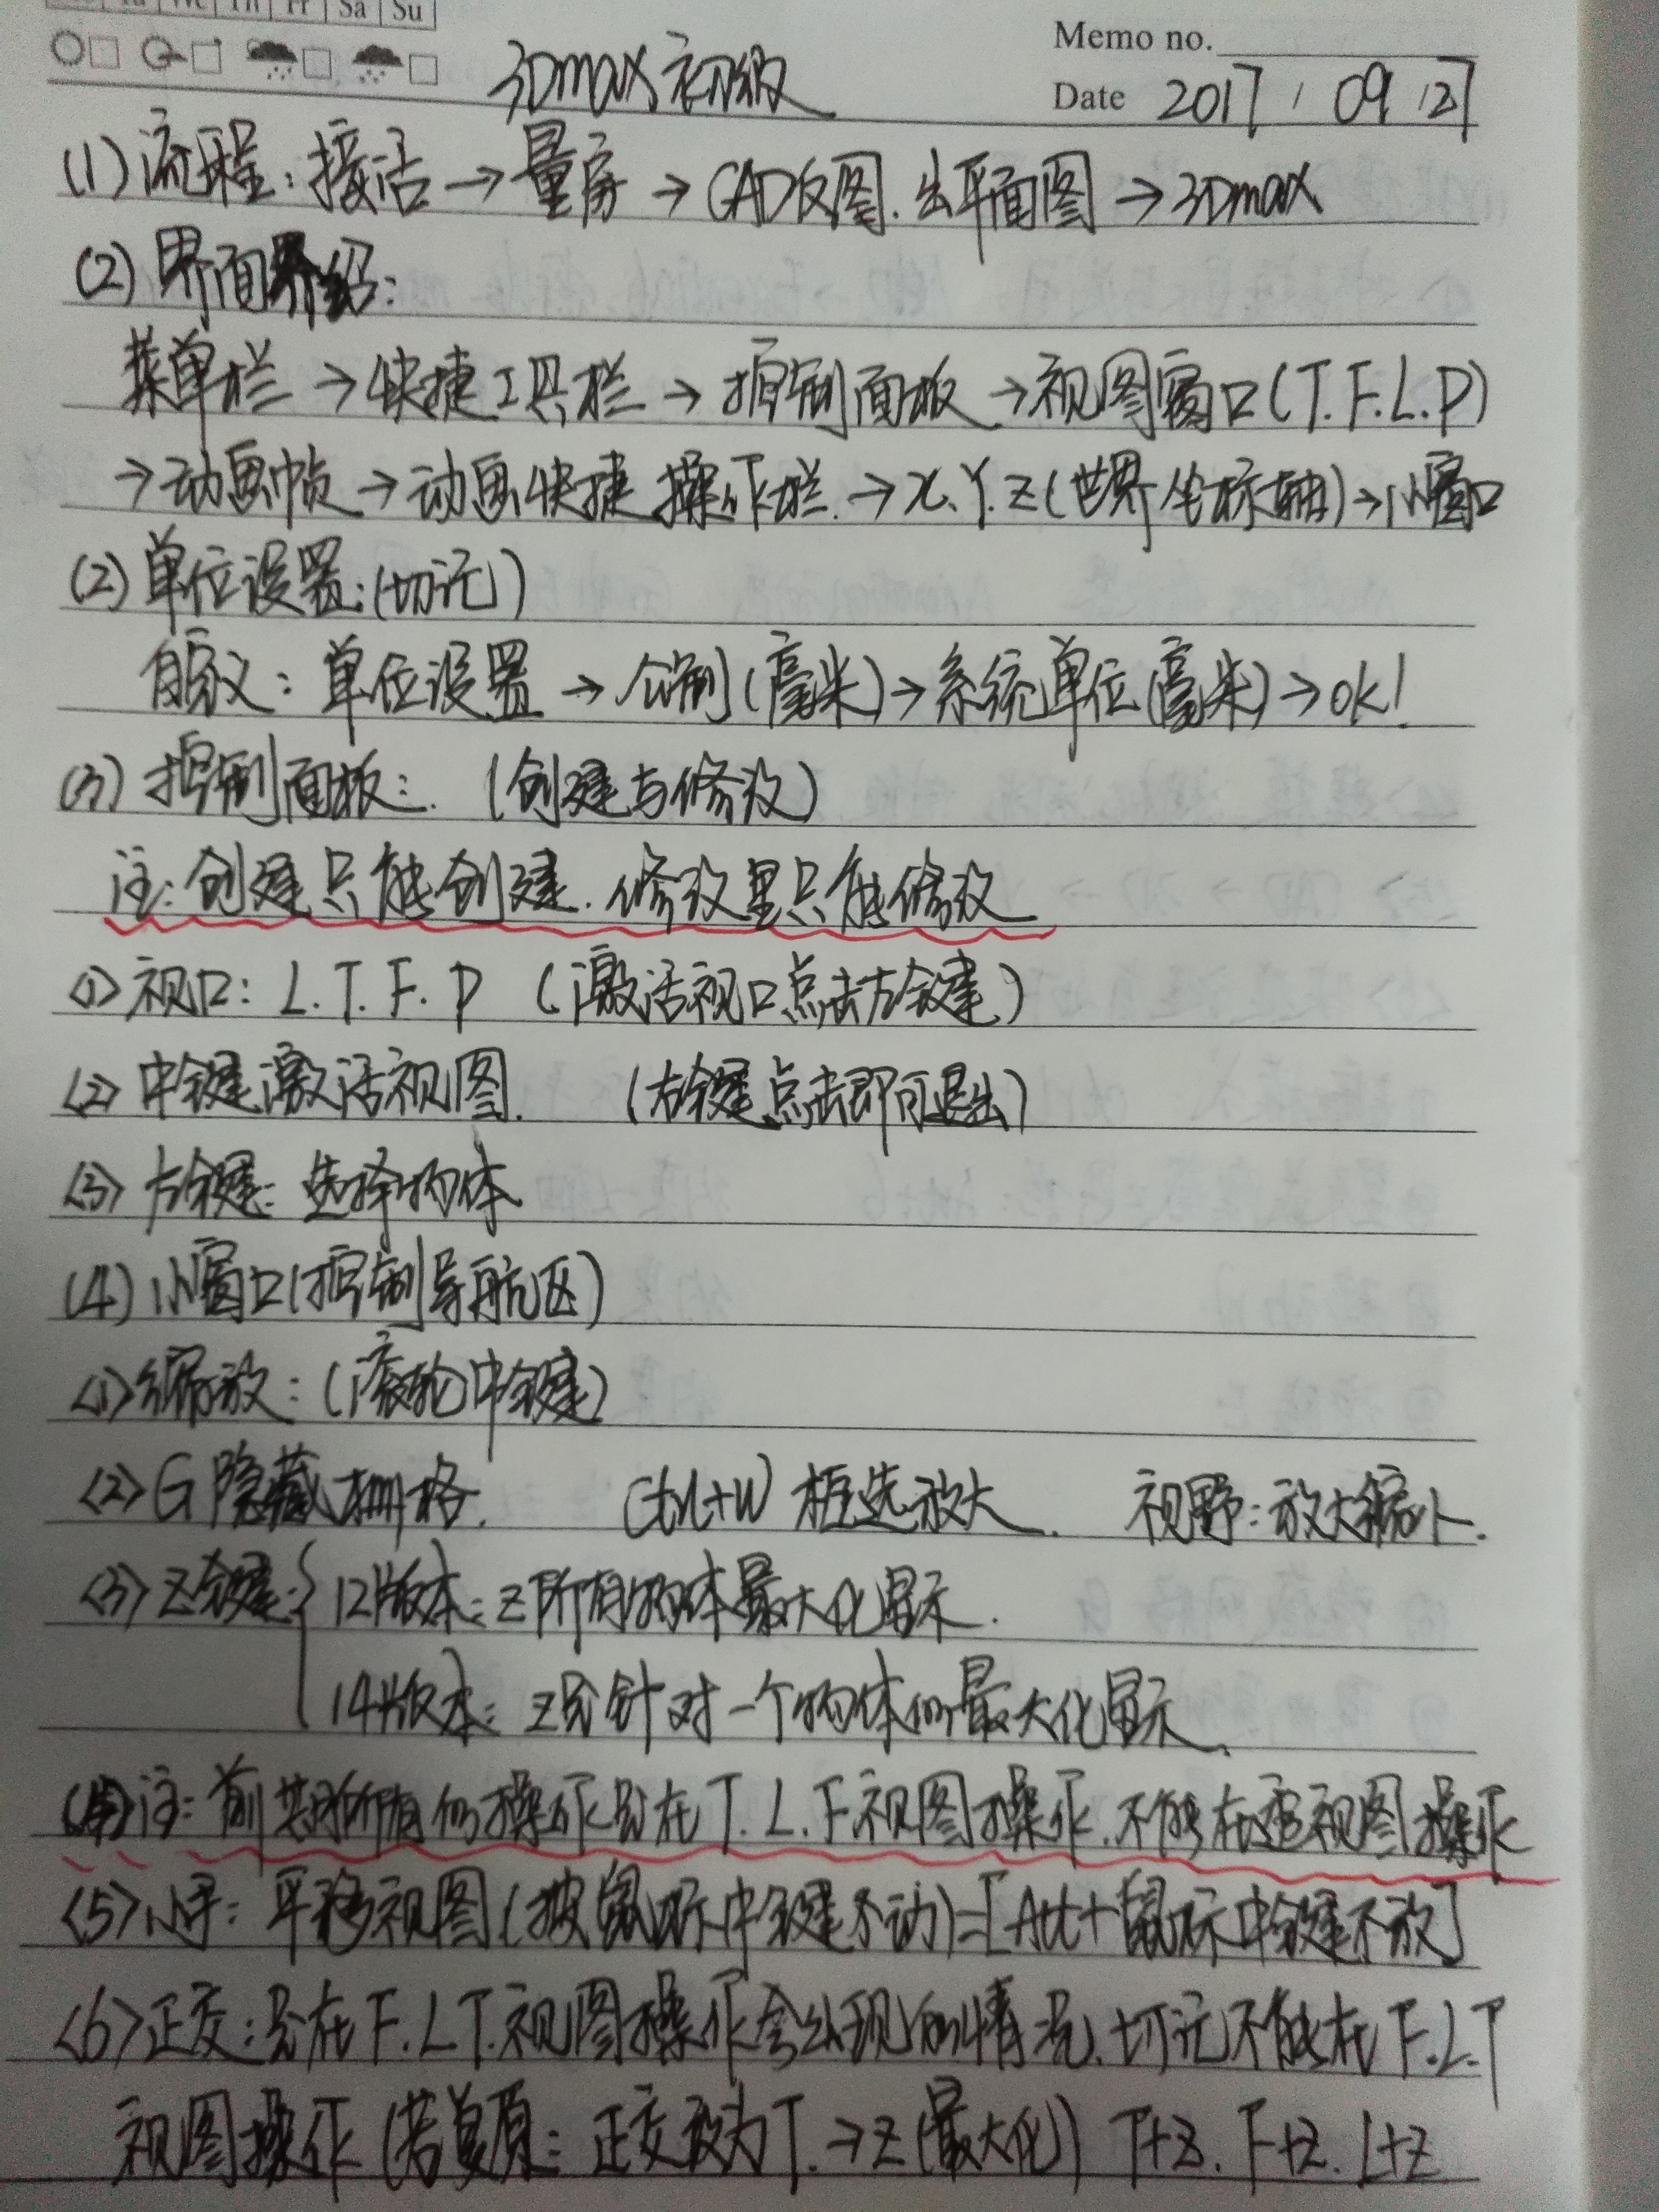 Sa Su
Memo no.
3Dmax初级
Date 2017 / 09 / 27
(1) 流程：接活→量房→CAD反图.出平面图→3Dmax
(2) 界面介绍：
菜单栏→快捷工具栏→控制面板→视图窗口(T.F.L.P)
→动画帧→动画快捷操作栏.→X.Y.Z(世界坐标轴)→小窗口
(2) 单位设置:(切记)
自定义：单位设置→公制(毫米)→系统单位(毫米)→ok!
(3) 控制面板：. (创建与修改)
注:创建只能创建.修改里只能修改
<1> 视口: L.T.F.P (激活视口点击左键)
<2> 中键激活视图. (右键点击即可退出)
<3> 左键：选择物体
(4) 小窗口(控制导航区)
<1> 缩放：(滚轮中键)
<2> G隐藏栅格. Ctrl+W 框选放大. 视野:放大缩小.
<3> Z键:{ 12版本:Z所有物体最大化显示.
14版本：Z只针对一个物体的最大化显示.
注：前 所有的操作只在T.L.F.视图操作.不能在透视图操作
<5> 小手：平移视图(按鼠标中键不动)=[Alt+鼠标中键不放]
<6> 正交:只在F.L.T.视图操作会出现的情况.切记不能在F.L.T
视图操作(若复原：正交改为T.→Z(最大化)) T+Z. F+Z. L+Z